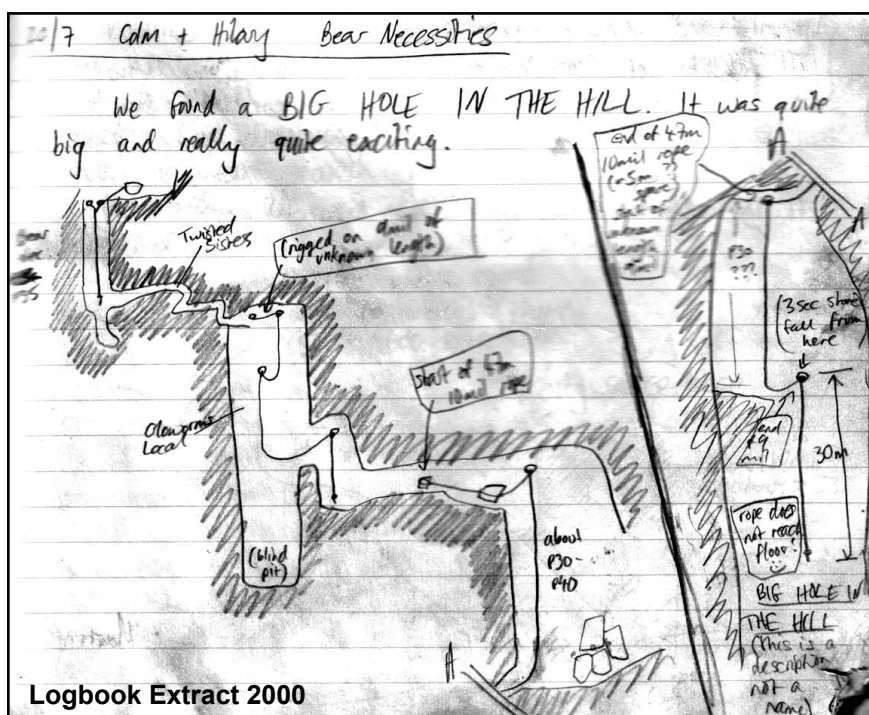 /7 Colm + Hilary Bear Necessities
We found a BIG HOLE IN THE HILL. It was quite
big and really quite exciting.
Twisted
Sisters
(rigged on 9mil of
unknown
length)
local
(blind
pit)
start of 47m
10mil rope
about
P30-
P40
A
end of 47m
10mil rope
(~5m
spare)
start of
unknown
length
9mil
A
A
P30
???
(3 sec stone
fall from
here
end
of 9
mil
30m
rope does
not reach
floor!
BIG HOLE IN
THE HILL
(this is a
description
not a
name)
Logbook Extract 2000